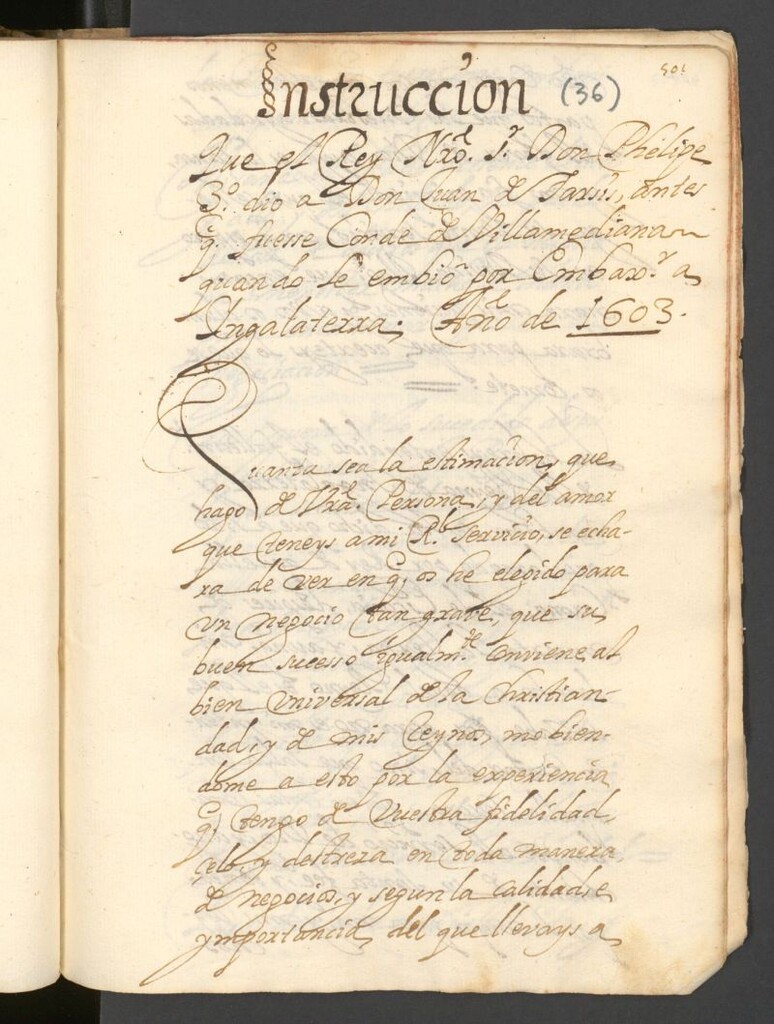 501
Instruccion (36)
Que el Rey Nrõ. S.r Don Phelipe
3.º dio a Don Juan de Tarsis, antes
q. fuesse Conde de Villamediana
quando le embiò por Embax.r a
Ingalaterra. Año de 1603.
Quanta sea la estimacion, que
hago de Vrã. Persona, y del amor
que teneys a mi R.l Servicio, se echa-
ra de ver en q. os he elegido para
un negocio tan grave, que su
buen sucesso igualm.te conviene al
bien universal de la Christian-
dad, y de mis Reynos, mobien-
dome a esto por la experiencia
q. tengo de Vuestra fidelidad,
çelo, y destreza en toda manera
de negocios, y segun la calidad, e
ymportancia, del que llevays a